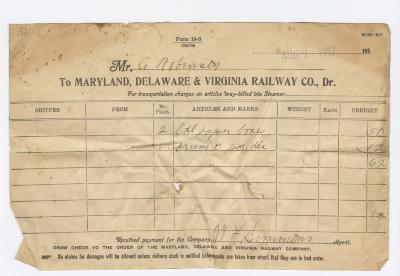 Form 19-S
AUG 1 1917 191
Mr. A Robinson
To MARYLAND, DELAWARE & VIRGINIA RAILWAY CO., Dr.
For transportation charges on articles way-billed via Steamer
SHIPPER FROM No. Pkgs. ARTICLES AND MARKS WEIGHT RATE FREIGHT
2 Bdl paper boxes 50
1 drum powder 12
62
Received payment for the Company, W F Simmons Agent.
DRAW CHECK TO THE ORDER OF THE MARYLAND, DELAWARE AND VIRGINIA RAILWAY COMPANY.
No claims for damages will be allowed unless delivery clerk is notified immediately on taking, that they are in bad order.